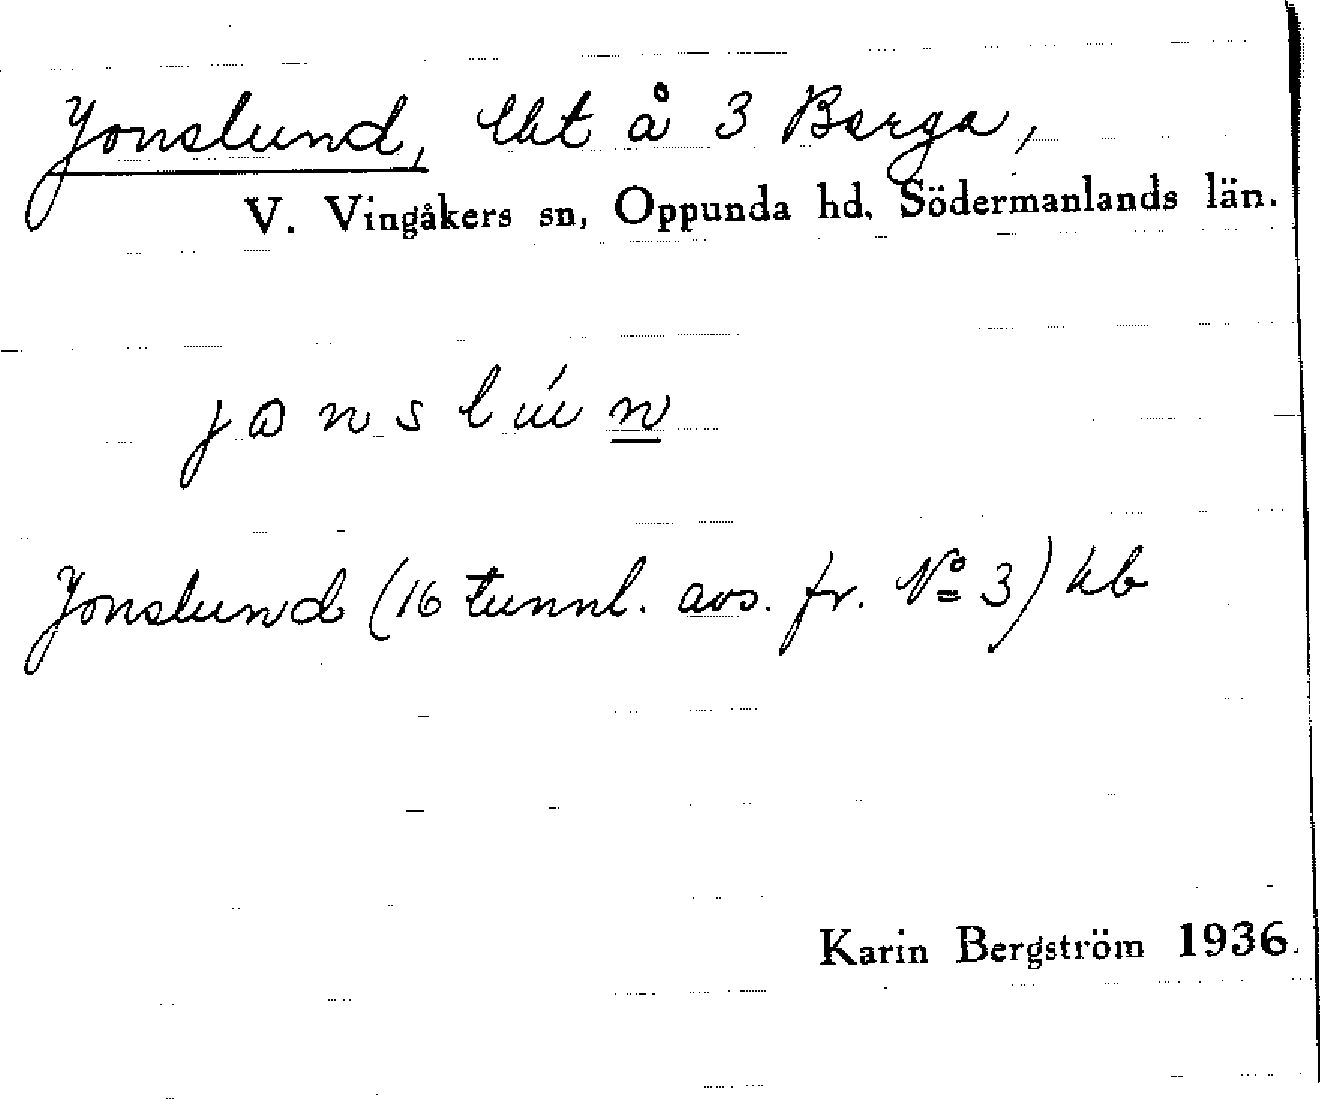 Jonslund, lht å 3 Berga,
V. Vingåkers sn, Oppunda hd, Södermanlands län.
jonslún
Jonslund (16 tunnl. avs. fr. № 3) kb
Karin Bergström 1936.